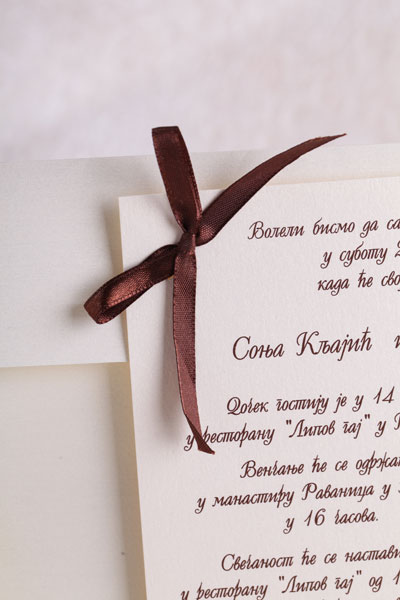 Волели бисмо да са
у суботу 2
када ће сво
Соња Кљајић и
Дочек гостију је у 14
у ресторану "Липов гај" у
Венчање ће се одржа
у манастиру Раваница у
у 16 часова.
Свечаност ће се настави
у ресторану "Липов гај" од 1